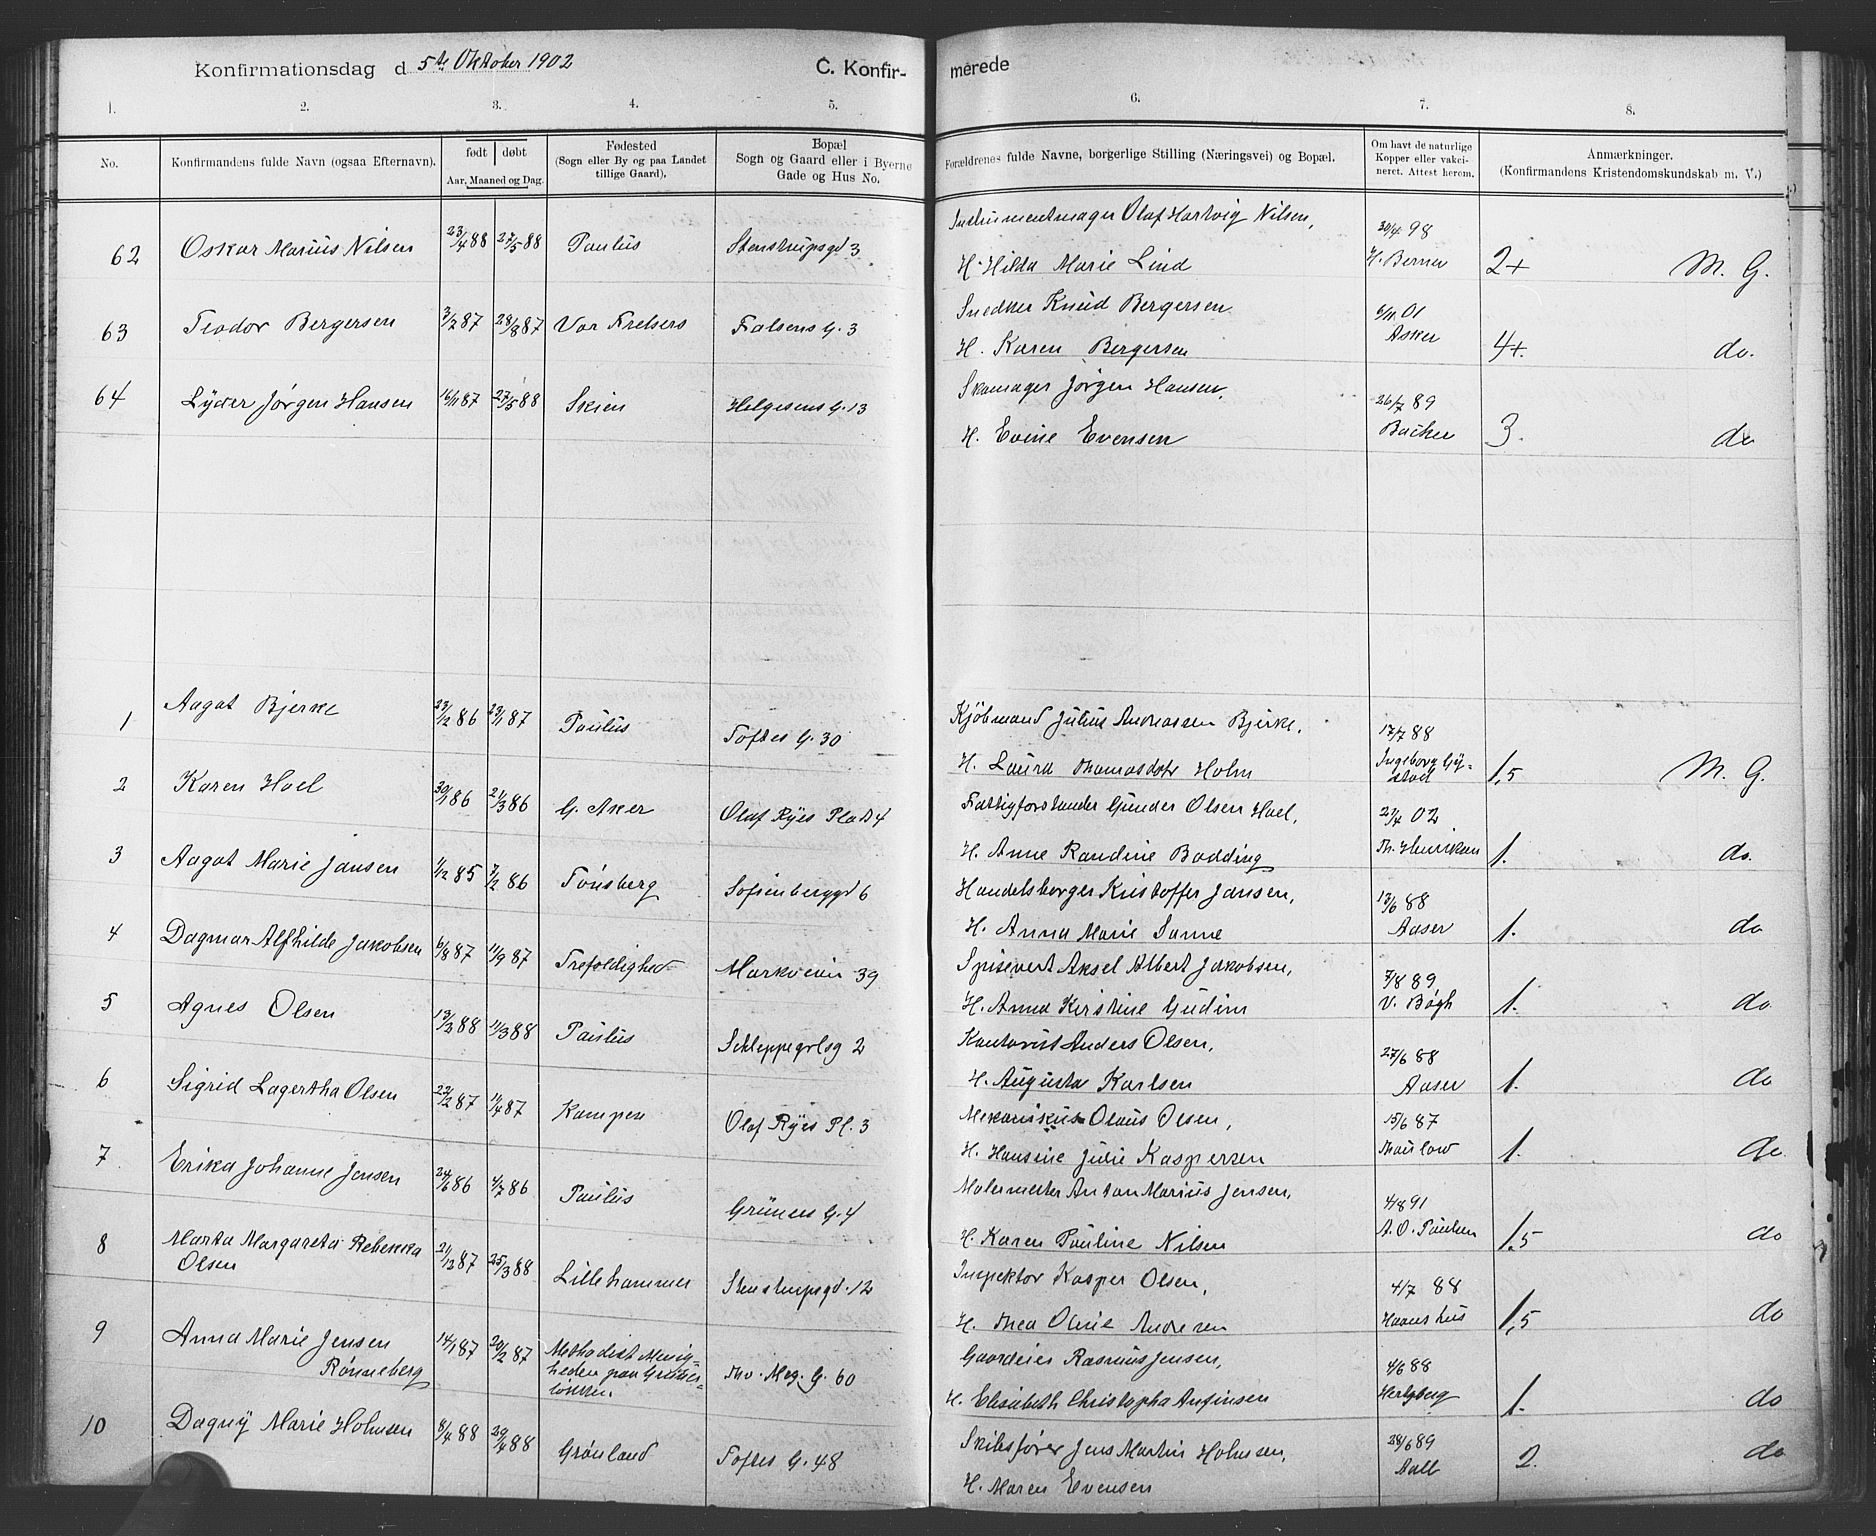 Konfirmationsdag d 5te Oktober 1902 C. Konfir- merede
1. 2. 3. 4. 5. 6. 7. 8.
No. Konfirmandens fulde Navn (ogsaa Efternavn). født døbt Aar, Maaned og Dag. Fødested (Sogn eller By og paa Landet tillige Gaard). Bopæl Sogn og Gaard eller i Byerne Gade og Hus No. Forældrenes fulde Navne, borgerlige Stilling (Næringsvei) og Bopæl. Om havt de naturlige Kopper eller vakcineret. Attest herom. Anmærkninger. (Konfirmandens Kristendomskundskab m. V.)
62 Oskar Marius Nilsen 23/4 88 27/5 88 Paulus Stenstrupsgd 3 Instrumentmager Olaf Hartvig Nilsen, 20/4 98
H. Hilda Marie Lind H. Berner 2+ M. G.
63 Teodor Bergersen 3/2 87 28/8 87 Vor Frelsers Falsens G. 3 Snedker Knud Bergersen 6/11 01
H. Karen Bergersen Asker 4+. do.
64 Lyder Jørgen Hansen 16/11 87 27/5 88 Skien Helgesens G. 13 Skomager Jørgen Hansen, 26/7 89
H. Evine Evensen Backer 3. do
1 Aagot Bjerke 23/12 86 23/1 87 Paulus Toftes G. 30 Kjøbmand Julius Andreassen Bjerke, 17/7 88
H. Laura Thomasdatr Holm Ingeborg Gystad 1,5 M. G.
2 Karen Hoel 30/1 86 21/3 86 G. Aker Olaf Ryes Plads 4 Fattigforstander Gunder Olsen Hoel, 21/4 02
H. Anne Randine Bodding Th. Henriksen 1. do.
3 Aagot Marie Jansen 1/12 85 7/2 86 Tönsberg Sofienberggd 6 Handelsborger Kristoffer Jansen, 13/6 88
H. Anna Marie Sanne Aaser 1. do
4 Dagmar Alfhilde Jakobsen 6/8 87 11/9 87 Trefoldighed Markveien 39 Spisevert Aksel Albert Jakobsen, 7/8 89
H. Anna Kirstine Gudim V. Bögh 1. do
5 Agnes Olsen 13/3 88 11/3 88 Paulus Schleppegrlsg 2 Kontorist Anders Olsen, 27/6 88
H. Augusta Karlsen Aaser 1. do
6 Sigrid Lagertha Olsen 22/2 87 11/4 87 Kampen Olaf Ryes Pl. 3 Mekanikus Olaus Olsen, 15/6 87
H. Hansine Julie Kaspersen Thaulow 1. do
7 Erika Johanne Jensen 24/6 86 4/7 86 Paulus Grüners G. 4 Malermester Anton Marius Jensen, 4/8 91
H. Karen Pauline Nilsen A. O. Paulsen 1,5 do
8 Marta Margareta Rebekka Olsen 21/12 87 25/3 88 Lillehammer Stenstrupsgd. 12 Inspektor Kasper Olsen, 4/7 88
H. Thea Olivie Andresen 1,5 do
9 Anna Marie Jensen Rønneberg 14/1 87 20/2 87 Methodist Menigheden paa Grünerløkken Thv. Meg. G. 60 Gaardeier Rasmus Jensen, 4/6 88
H. Elisabeth Christopha Anfinsen Hertzberg 1. do
10 Dagny Marie Holmsen 8/4 88 29/4 88 Grønland Toftes G. 48 Skibsfører Jens Martin Holmsen, 28/6 89
H. Maren Evensen Aall 2. do